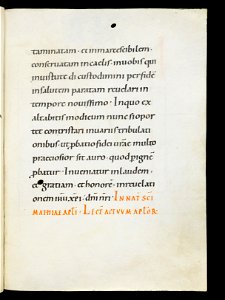 taminatam · et inmarcescibilem ·
conseruatam in caelis · in uobis qui
in uirtute di custodimini per fidē
in salutem paratam reuelari in
tempore nouissimo · In quo ex
altabitis modicum nunc si opor
tet contristari in uariis tribulati
onibus · ut p̱batio fidei urāe multo
praeciosior sit auro · quod p ignē
p̱batur · Inueniatur in laudem ·
et gratiam · et honorē · in reuelati
onem ihu xpi · dni nri · IN NAT SCI
MATHIAE APLI · LECT ACTUUM APLOR